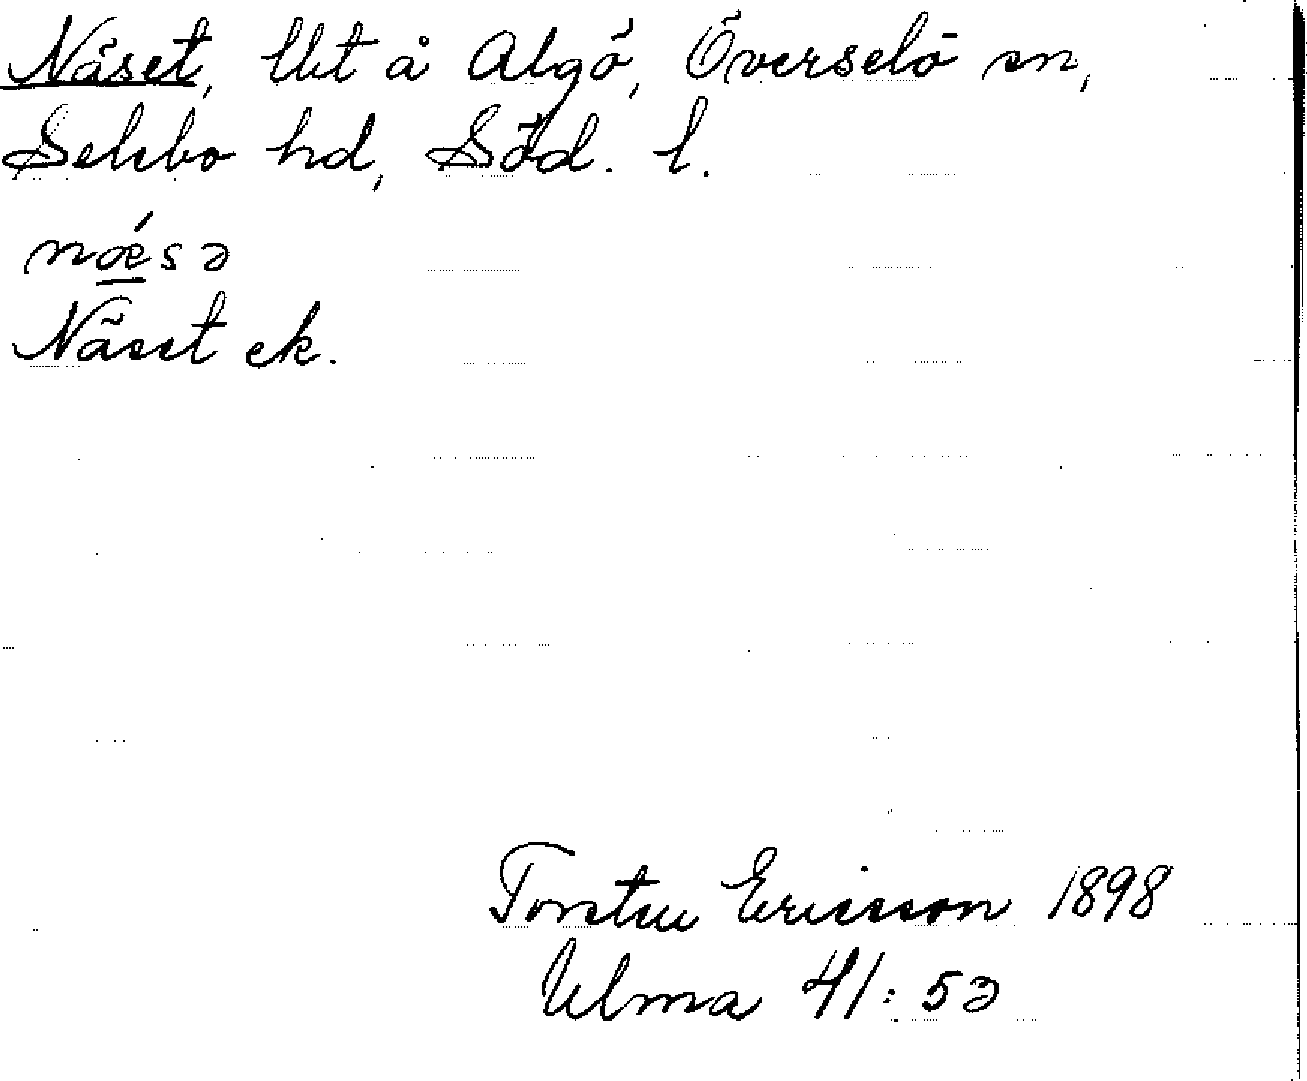 Näset, Utt å Algö, Överselö sn,
Selebo hd, Söd. l.
nǽsə
Näset ek.
Torsten Ericsson 1898
Ulma 41:52